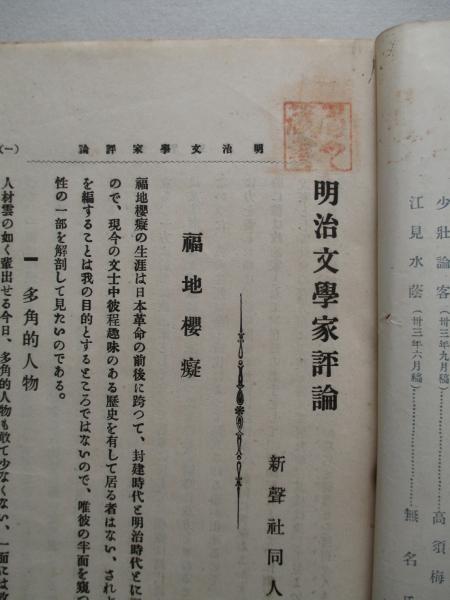 少壯論客(卅三年九月稿)…………高須梅
江見水蔭(卅三年六月稿)…………無名氏
明治文學家評論
(一)
明治文學家評論
新聲社同人
福地櫻癡
福地櫻癡の生涯は日本革命の前後に跨つて、封建時代と明治時代とに
ので、現今の文士中彼程趣味のある歷史を有して居る者はない、され
を編することは我の目的とするところではないので、唯彼の半面を窺つ
性の一部を解剖して見たいのである。
一 多角的人物
人材雲の如く輩出せる今日、多角的人物も敢て少なくない、一面には